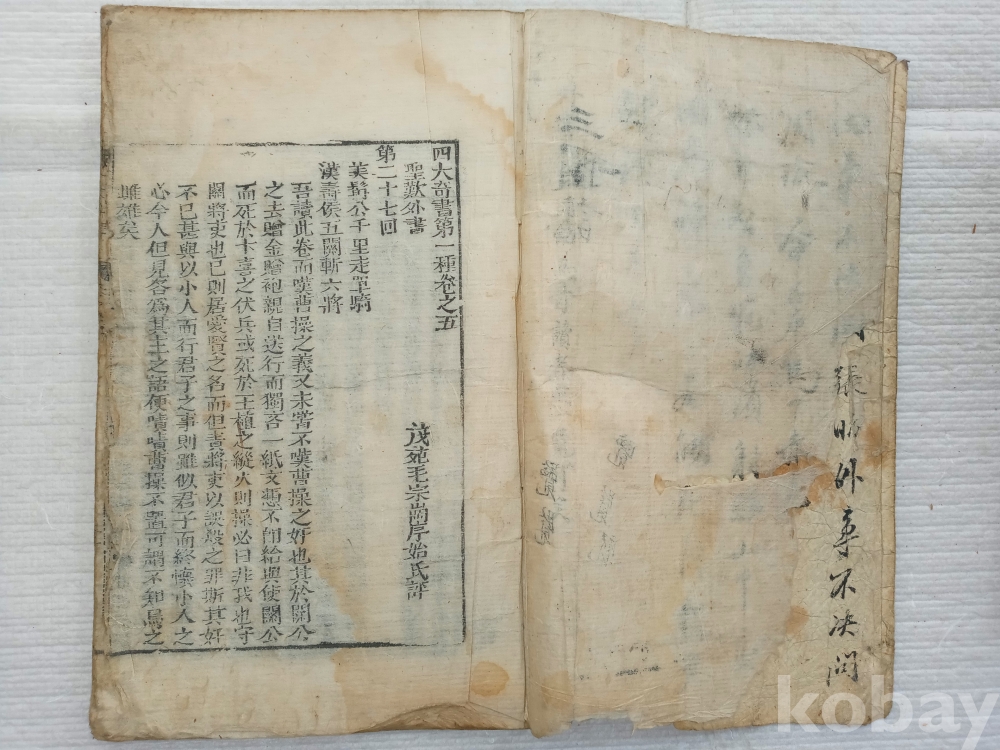 張昭外事不決問
四大奇書第一種卷之五
聖歎外書
茂苑毛宗崗序始氏評
第二十七回
美髯公千里走單騎
漢壽侯五關斬六將
吾讀此卷而嘆曹操之義又未嘗不嘆曹操之奸也其於關公
之去贈金贈袍親自送行而獨吝一紙文憑不即給與使關公
而死於卞喜之伏兵或死於王植之縱火則操必曰非我也守
關將吏也已則居愛賢之名而但責將吏以誤殺之罪斯其奸
不已甚與以小人而行君子之事則雖似君子而終懷小人之
心今人但見各爲其主之語便嘖嘖曹操不置可謂不知烏之
雌雄矣
kobay